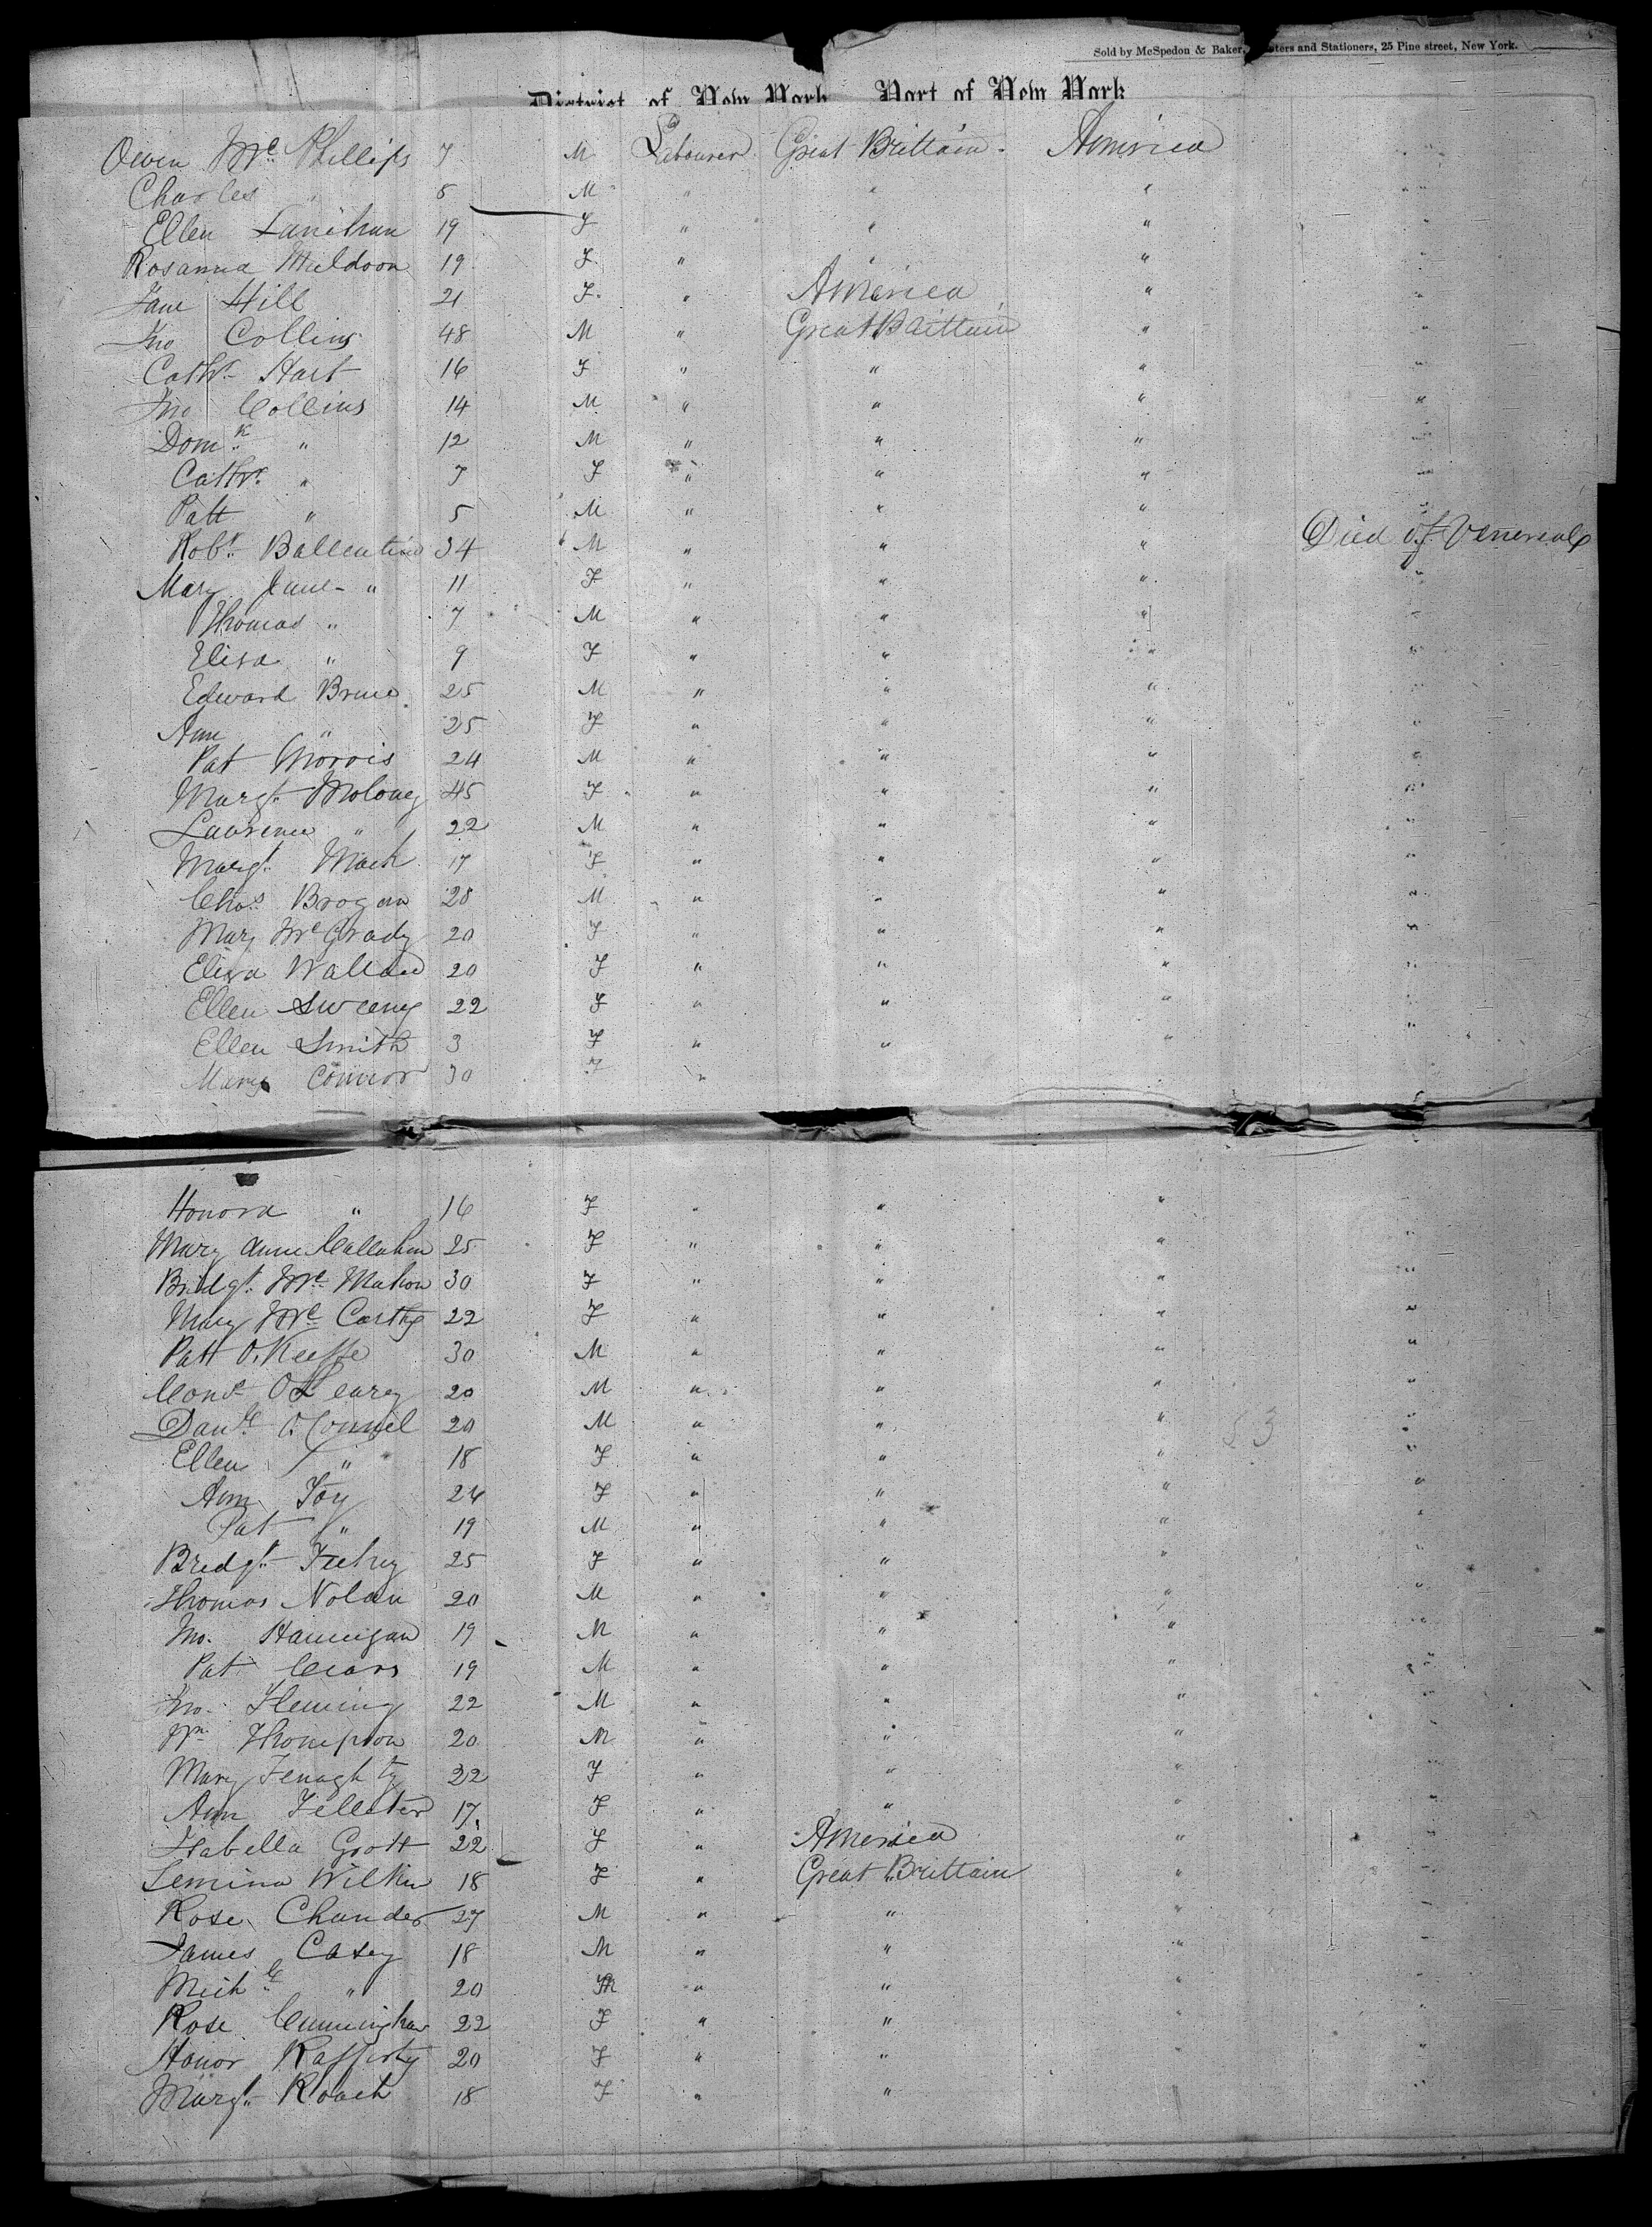 Sold by McSpedon & Baker, Printers and Stationers, 25 Pine street, New York.
District of New York Port of New York
Owen Mc Phillips 7 M Labourer Great Brittain America
Charles " 5 M " " "
Ellen Lanihan 19 F " " "
Rosanna Muldoon 19 F " " "
Jane Hill 21 F " America "
Jno Collins 48 M " Great Brittain "
Cathr Hart 16 F " " " "
Jno Collins 14 M " " " "
Domk " 12 M " " " "
Cathr " 7 F " " " "
Patt " 5 M " " " "
Robt Ballentine 34 M " " " Died of Venereal
Mary Jane " 11 F " " " "
Thomas " 7 M " " " "
Eliza " 9 F " " " "
Edward Bruce 25 M " " " "
Ann " 25 F " " " "
Pat Morris 24 M " " " "
Margt Moloney 45 F " " " "
Lawrence " 22 M " " " "
Margt Mack 17 F " " " "
Chas Brogan 28 M " " " "
Mary McGrady 20 F " " " "
Eliza Wallace 20 F " " " "
Ellen Sweeny 22 F " " " "
Ellen Smith 3 F " " " "
Mary Connor 30 F "
Honora " 16 F " " " "
Mary Anne Callahan 25 F " " " "
Bridgt Mc Mahon 30 F " " " "
Mary Mc Carthy 22 F " " " "
Patt O'Keeffe 30 M " " " "
Cons O'Leary 20 M " " " "
Danl O'Connel 20 M " " " "
Ellen " 18 F " " " "
Ann Foy 24 F " " " "
Pat " 19 M " " " "
Bredgt Feehey 25 F " " " "
Thomas Nolan 20 M " " " "
Jno. Hannigan 19 M " " " "
Pat 19 M " " " "
Jno. Fleming 22 M " " "
Wm Thompson 20 M " " "
Mary Fenaghty 22 F " " "
Ann 17 F " " "
Isabella Grott 22 F " America "
Lemina Wilkin 18 F " Great Brittain "
Rose Chander 27 M " " "
James Casey 18 M " " "
Michl " 20 M " " "
Rose Cunningham 22 F " " "
Honor Rafferty 20 F " "
Margt Roach 18 F " "